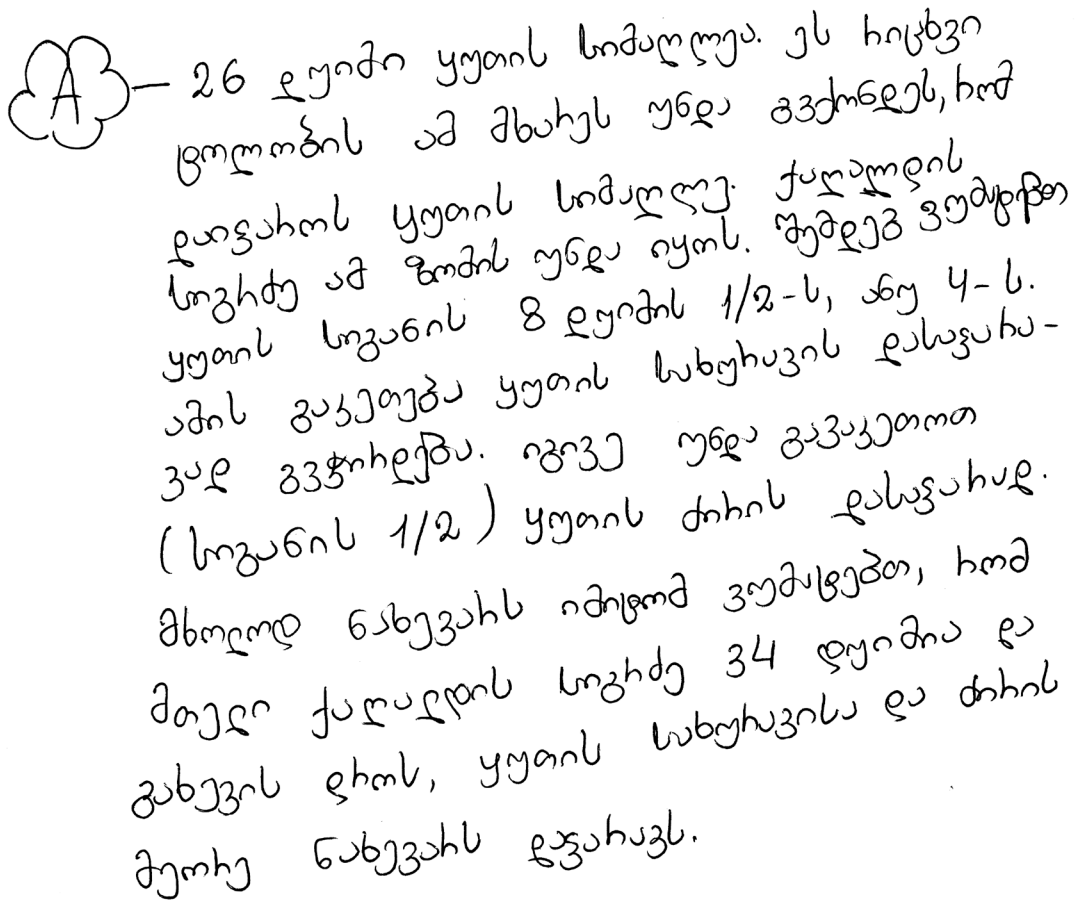 A – 26 დუიმი ყუთის სიმაღლეა. ეს რიცხვი
ტოლობის ამ მხარეს უნდა გვქონდეს, რომ
დაიფაროს ყუთის სიმაღლე. ქაღალდის
სიგრძე ამ ზომის უნდა იყოს. შემდეგ ვუმატებთ
ყუთის სიგანის 8 დუიმის 1/2-ს, ანუ 4-ს.
ამის გაკეთება ყუთის სახურავის დასაფარა-
ვად გვჭირდება. იგივე უნდა გავაკეთოთ
(სიგანის 1/2) ყუთის ძირის დასაფარად.
მხოლოდ ნახევარს იმიტომ ვუმატებთ, რომ
მთელი ქაღალდის სიგრძე 34 დუიმია და
გახევის დროს, ყუთის სახურავისა და ძირის
მეორე ნახევარს დაფარავს.